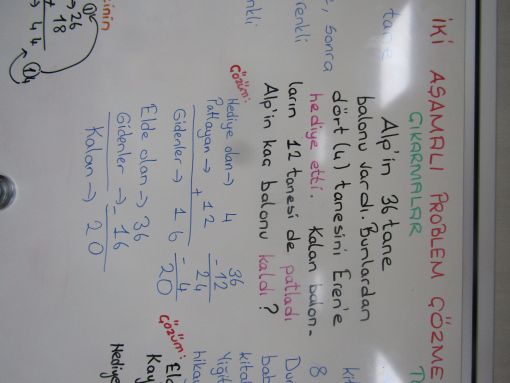 İKİ AŞAMALI PROBLEM ÇÖZME
ÇIKARMALAR
Alp'in 36 tane
balonu vardı. Bunlardan
dört (4) tanesini Eren'e
hediye etti. Kalan balon-
ların 12 tanesi de patladı
Alp'in kaç balonu kaldı?
ÇÖZÜM:
Hediye olan → 4
Patlayan → + 12
Gidenler → 16
Elde olan → 36
Gidenler → - 16
Kalan → 20
36
- 12
24
- 4
20
tane
sonra
renkli
nkli
inin
26
+ 18
44
8
ÇÖZÜM:
Hediye